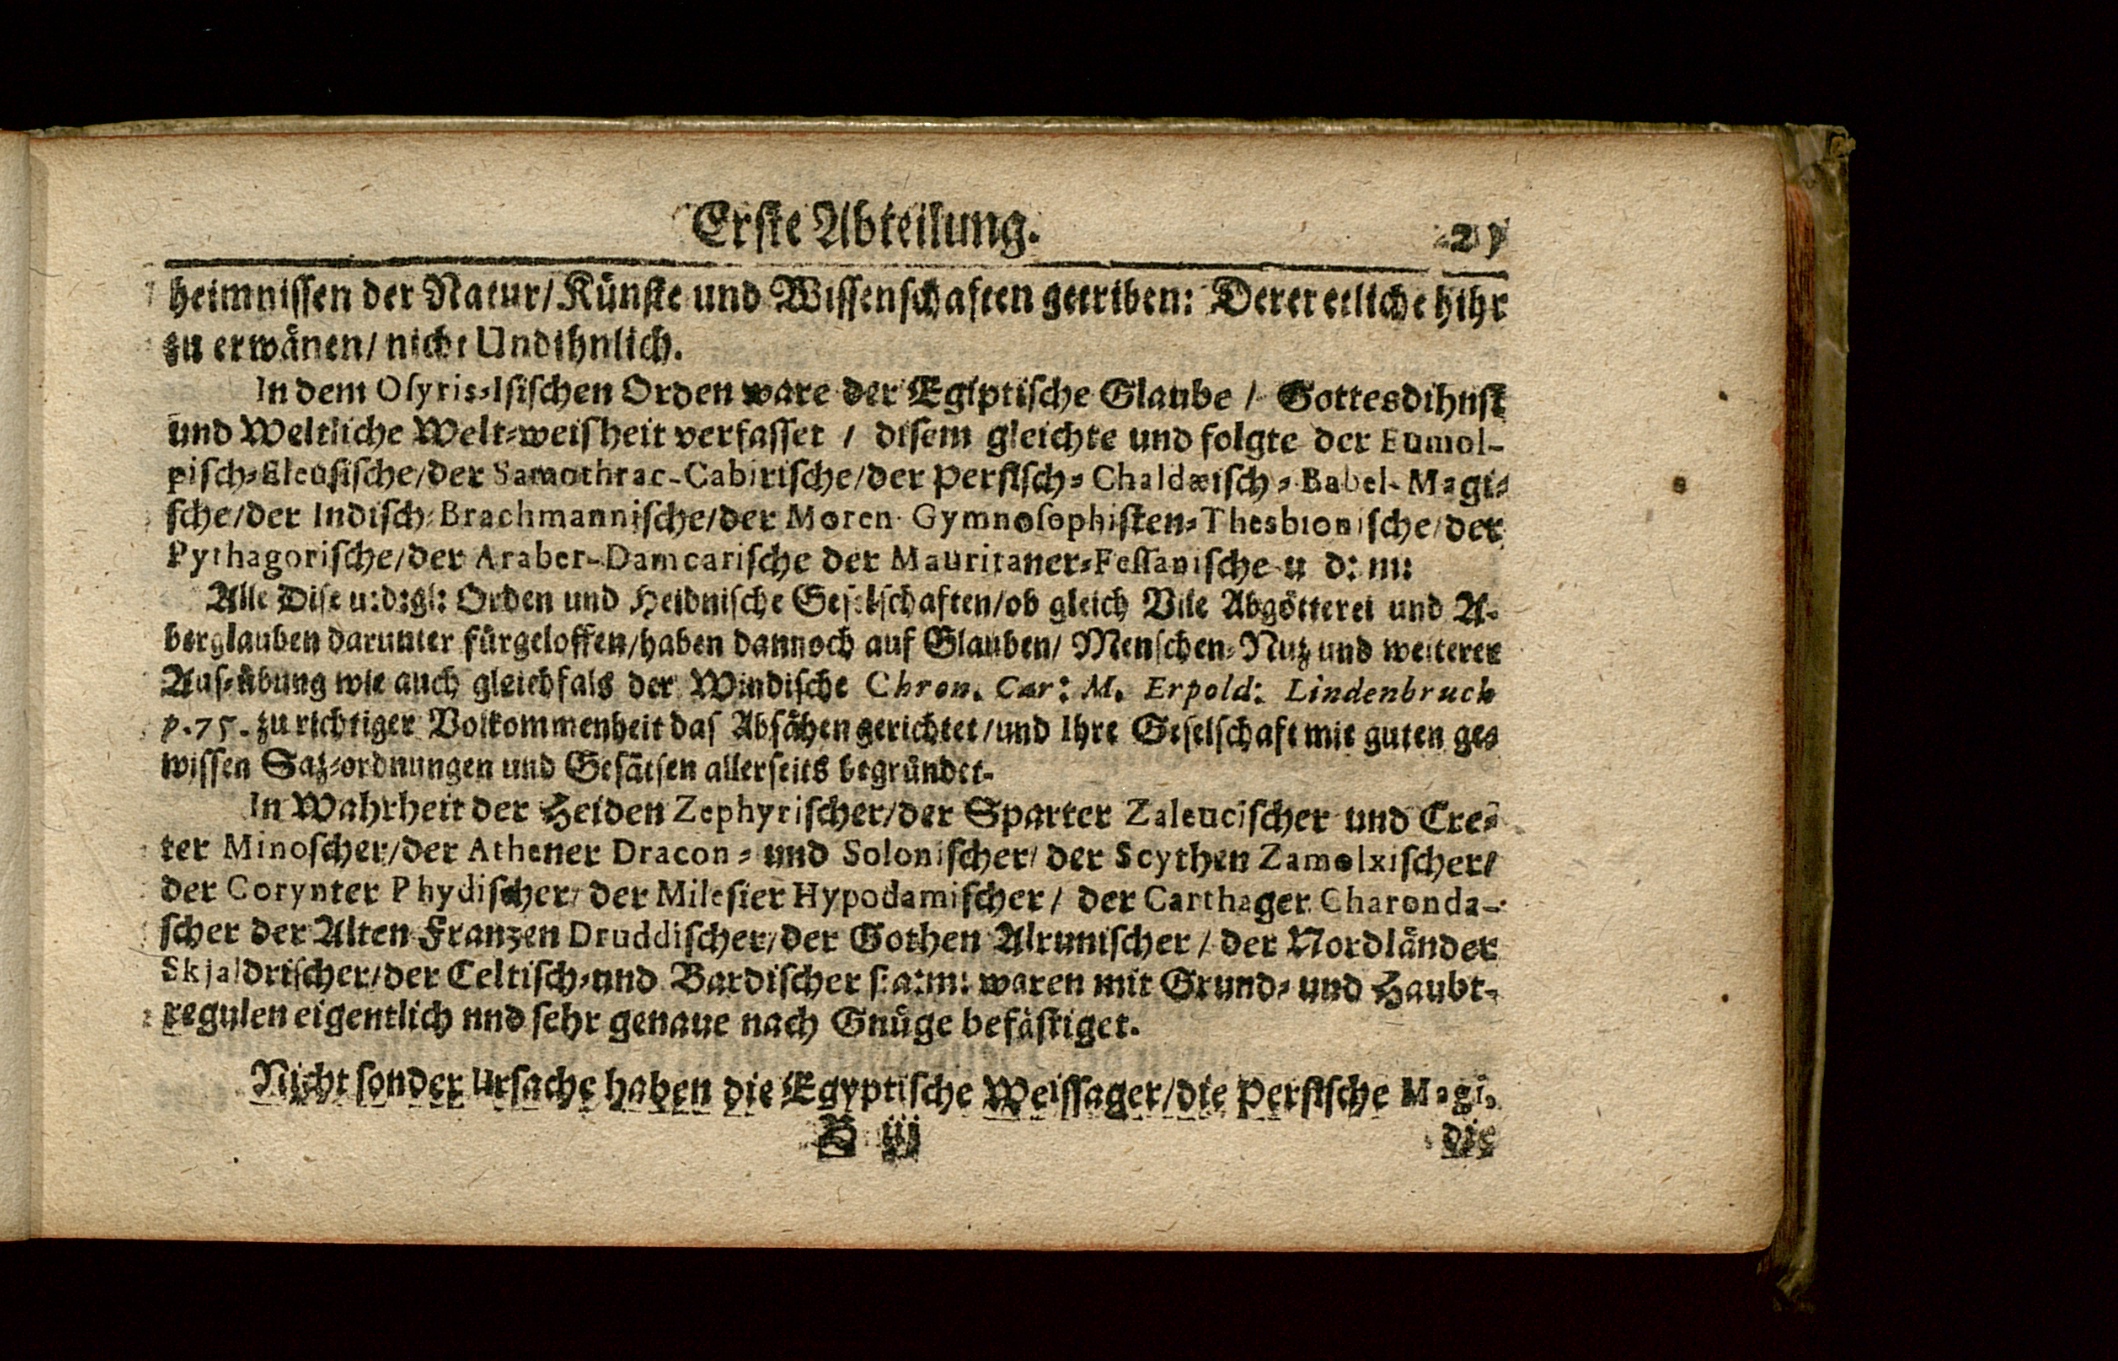 Erste Abteilung.
heimnissen der Natur/ Künste und Wissenschaften getriben: Derer etliche hihr
zu erwänen/ nicht Undihnlich.
In dem Osyris-Isischen Orden ware der Egiptische Glaube / Gottesdihnst
und Weltliche Welt-weisheit verfasset / disem gleichte und folgte der Eumol-
pisch-Eleusische/der Samothrac-Cabirische/der Persisch-Chaldæisch-Babel-Magi-
sche/der Indisch-Brachmannische/der Moren-Gymnosophisten-Thesbionische/der
Pythagorische/der Araber-Damcarische der Mauritaner-Fessanische u d: m:
Alle Dise u:d:gl: Orden und Heidnische Geselschaften/ob gleich Vile Abgötterei und A-
berglauben darunter fürgeloffen/haben dannoch auf Glauben/ Menschen-Nutz und weiterer
Aus-übung wie auch gleichfals der Windische Chron. Car: M. Erpold: Lindenbruch
p.75. zu richtiger Volkommenheit das Absähen gerichtet/und Ihre Geselschaft mit guten ge-
wissen Satz-ordnungen und Gesätsen allerseits begründet.
In Wahrheit der Heiden Zephyrischer/der Sparter Zaleucischer und Cre-
ter Minoscher/der Athener Dracon- und Solonischer/ der Scythen Zamolxischer/
der Corynter Phydischer/ der Milesier Hypodamischer / der Carthager Charonda-
scher der Alten Franzen Druddischer/der Gothen Alrunischer / der Nordländer
Skjaldrischer/der Celtisch-und Bardischer s:a:m: waren mit Grund- und Haubt-
regulen eigentlich nnd sehr genaue nach Gnüge befästiget.
Nicht sonder Ursache haben die Egyptische Weissager/die Persische Magi,
D iij
die